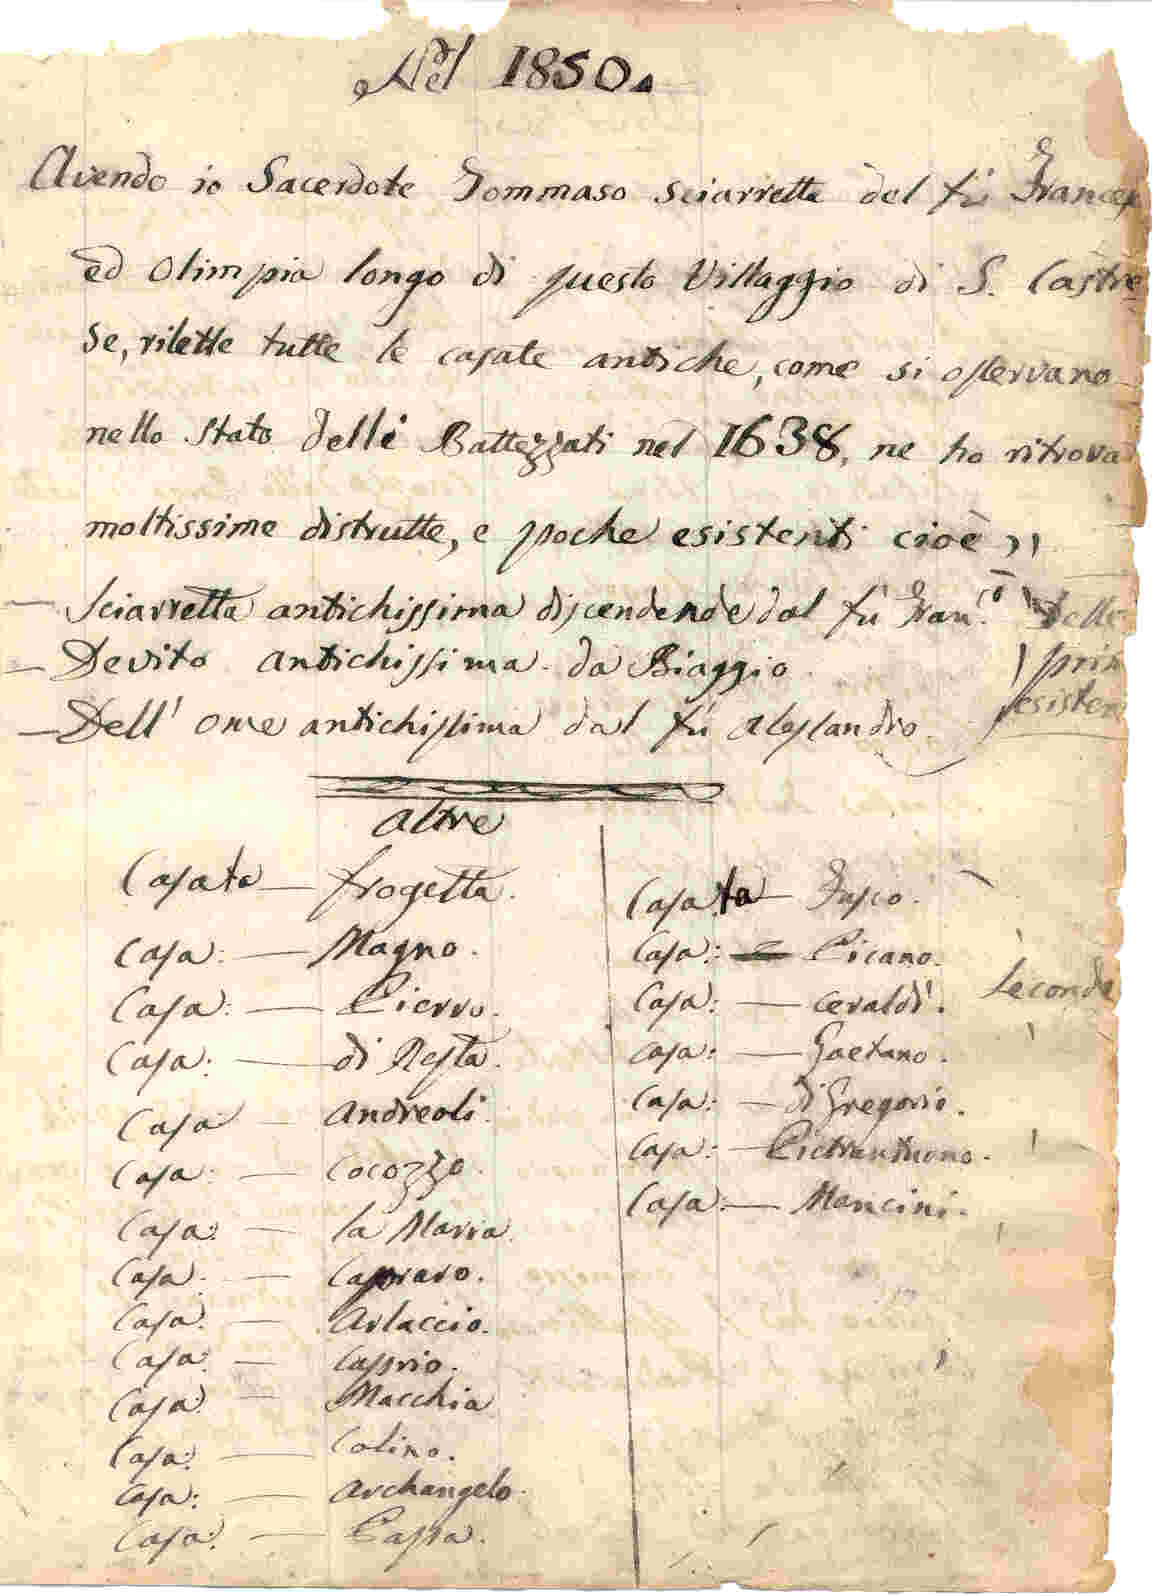 Nel 1850.
Avendo io Sacerdote Tommaso Sciarretta del fù Francesc
ed Olimpia longo di questo Villaggio di S. Castre
se, rilette tutte le casate antiche, come si osservano
nello Stato delli Battezzati nel 1638, ne ho ritrova
moltissime distrutte, e poche esistenti cioè
— Sciarretta antichissima discendende dal fù Fran.co Delle
— Devito antichissima da Biaggio prim
— Dell' ome antichissima dal fù Alessandro esisten
altre
Casata — frogetta.
Casa: — Magno.
Casa: — Pierro.
Casa: — di Resta.
Casa — Andreoli.
Casa: — Cocozzo.
Casa: — la Marra
Casa: — Capraro.
Casa: — Arlaccio.
Casa: — Caprio.
Casa: — Macchia
Casa: — Colino.
Casa: — Archangelo.
Casa: — Passa.
Casata — Fusco.
Casa: — Picano.
Casa: — Ceraldi.
Casa: — Gaetano.
Casa: — di Gregorio.
Casa: — Pietrantuono.
Casa: — Mancini.
Seconde